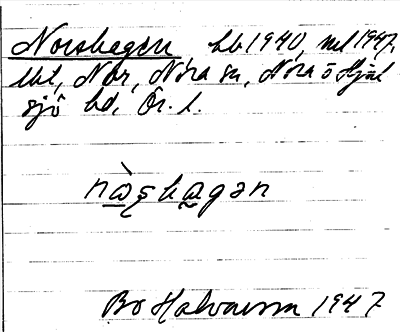 Norshagen hb 1940, nul 1947,
Nor, Nora sn, Nora o Hjul
sjö bd, Ör. l.
nàşhagən
Bo Halvarson 1947